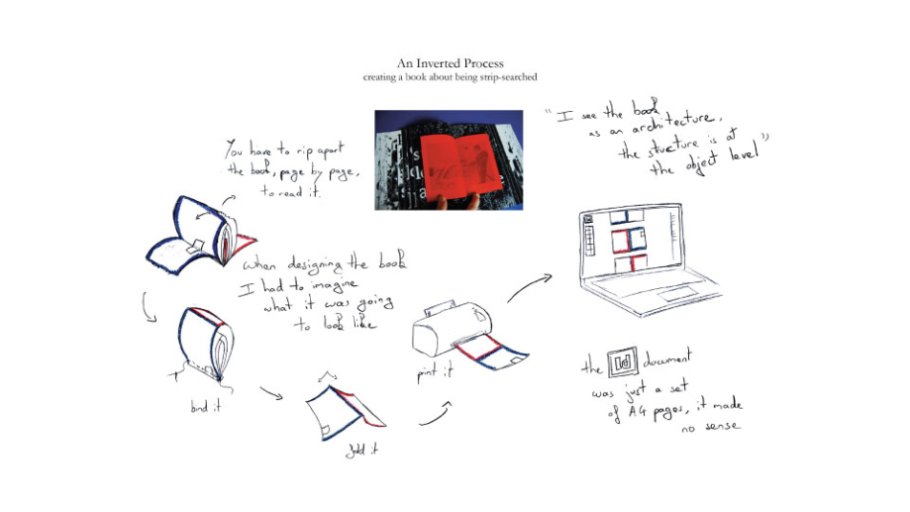 An Inverted Process
creating a book about being strip-searched
You have to rip apart
the book, page by page,
to read it.
"I see the book
as an architecture,
the structure is at
the object level"
When designing the book
I had to imagine
what it was going
to look like
bind it
fold it
print it
the Id document
was just a set
of A4 pages, it made
no sense